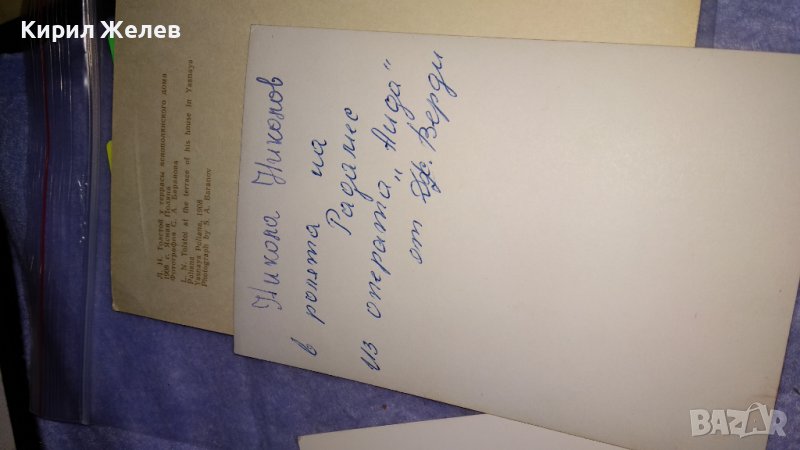 Кирил Желев
Л. Н. Толстой у террасы яснополянского дома
1908 г. Ясная Поляна
Фотография С. А. Баранова
L. N. Tolstoi at the terrace of his house in Yasnaya
Poliana
Yasnaya Poliana, 1908
Photograph by S. A. Baranov
Никола Николов
в ролята на
Радамес
из операта "Аида"
от Дж. Верди
BAZAR